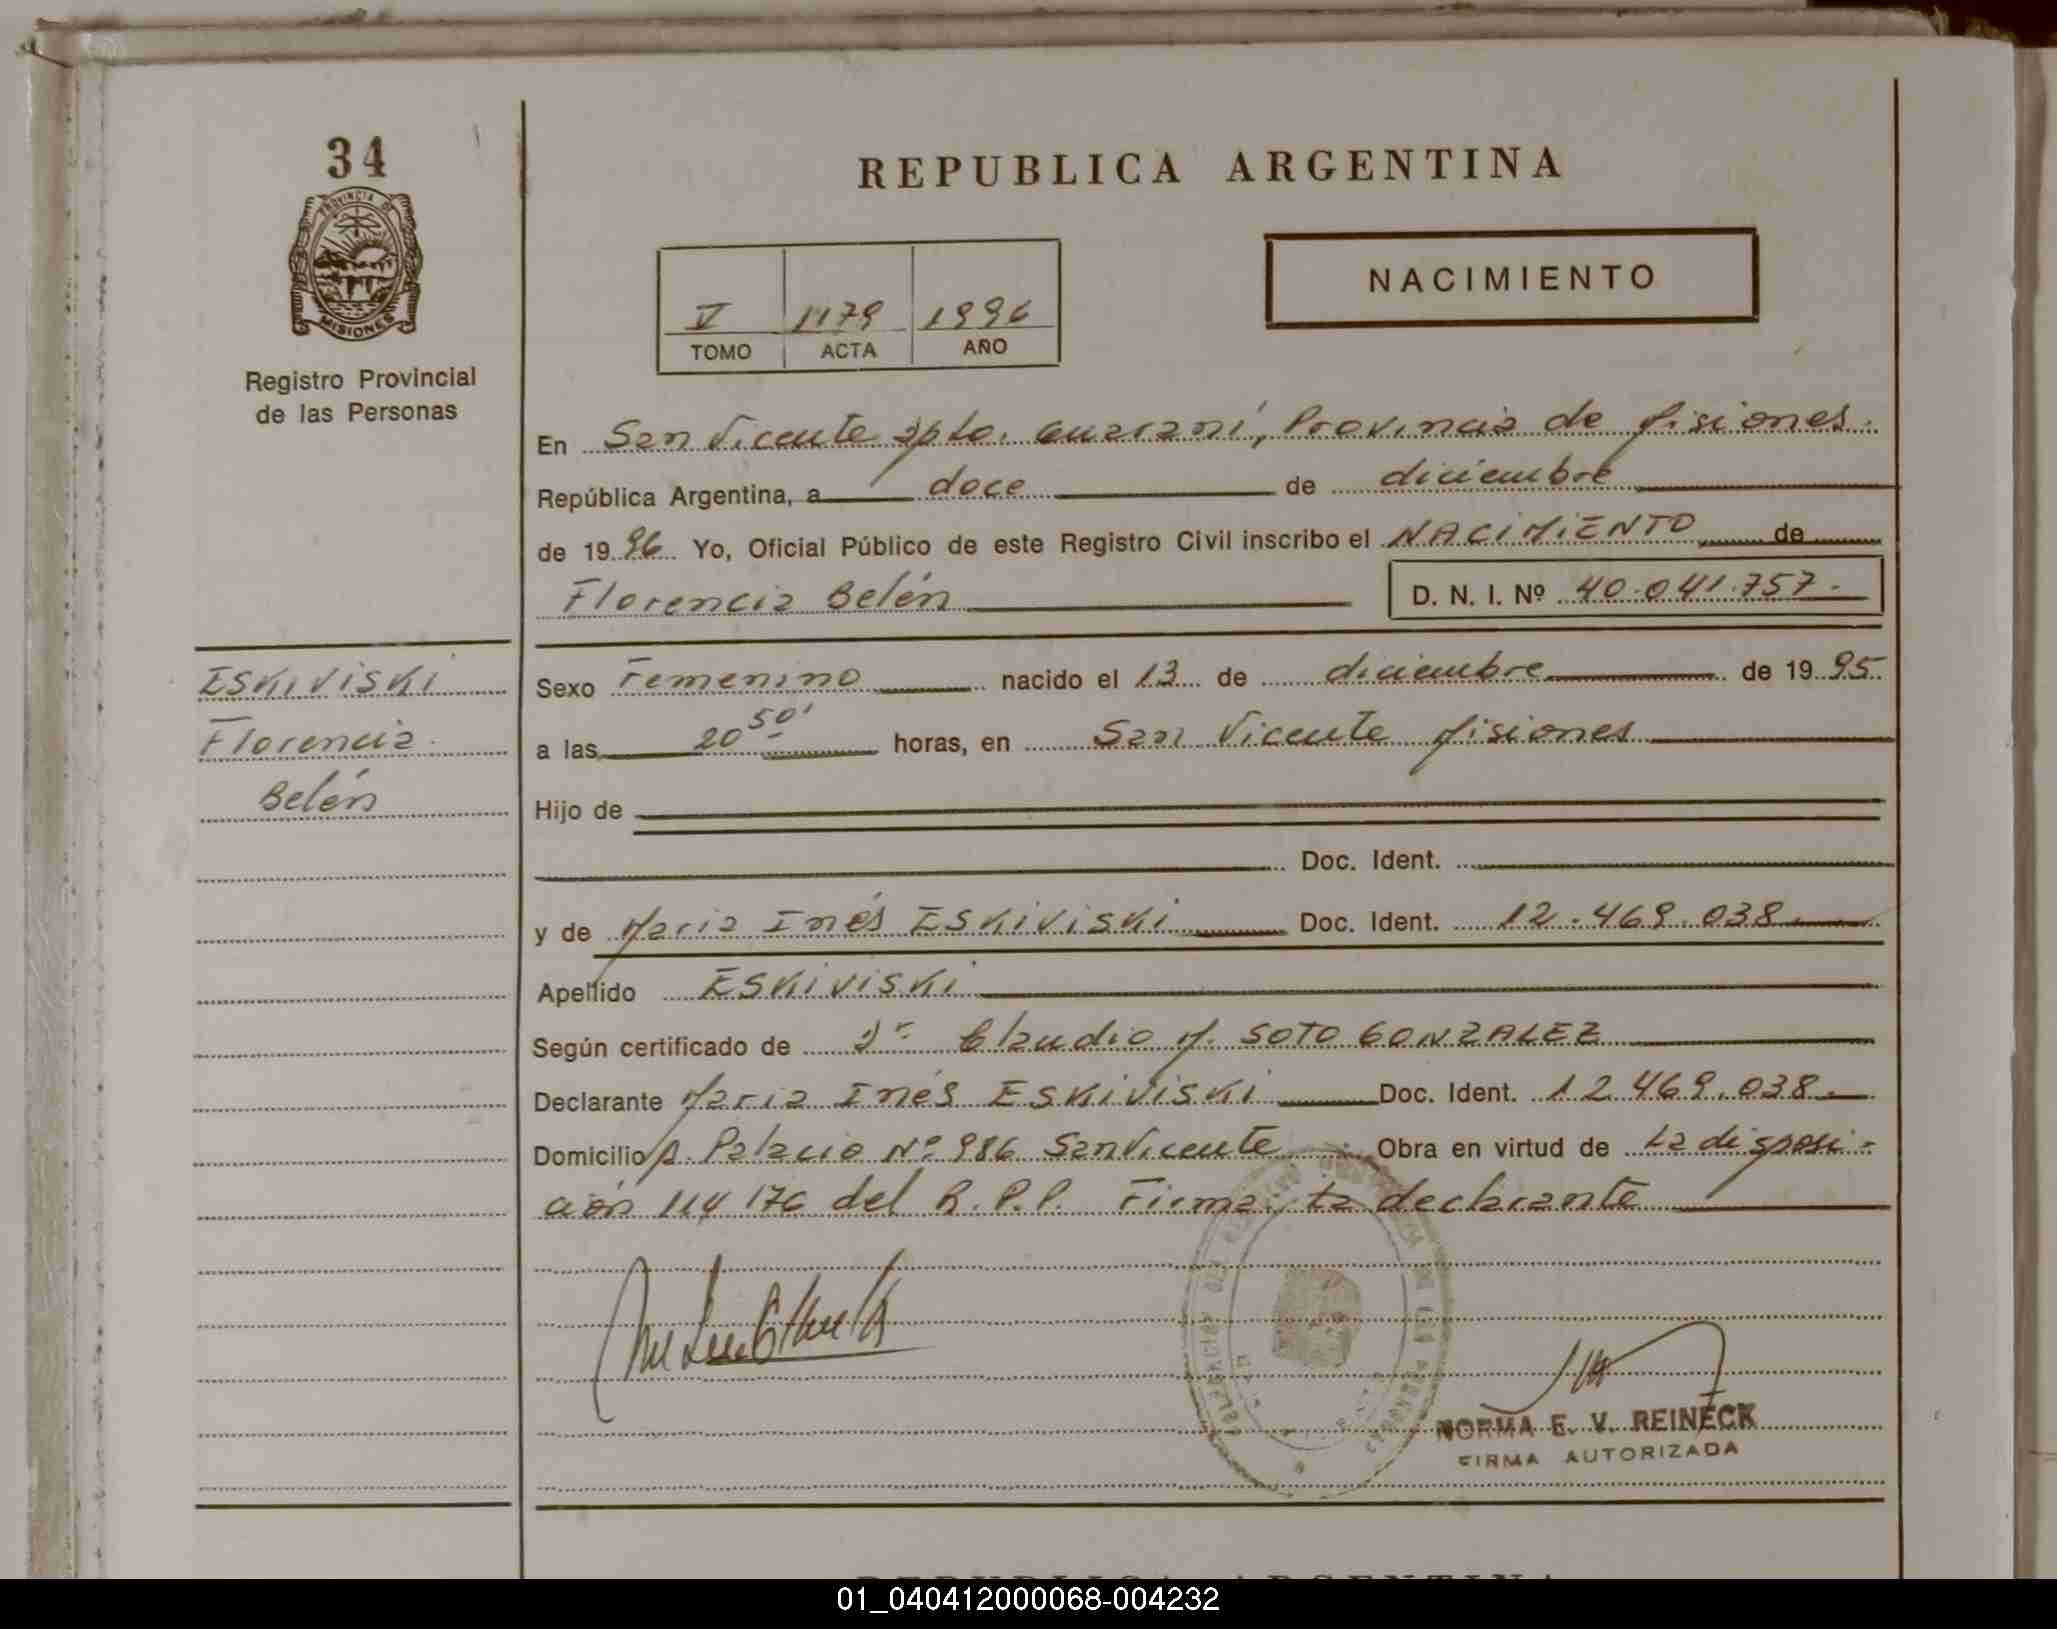 34
PROVINCIA DE
MISIONES
Registro Provincial
de las Personas
REPUBLICA ARGENTINA
NACIMIENTO
V 1179 1996
TOMO ACTA AÑO
En San Vicente Dpto. Guaraní, Provincia de Misiones.
República Argentina, a doce de diciembre
de 1996 Yo, Oficial Público de este Registro Civil inscribo el NACIMIENTO de
Florencia Belén D. N. I. Nº 40.041.757.
ESKIVISKI
Florencia
Belén
Sexo Femenino nacido el 13 de diciembre de 1995
a las 20 50' horas, en San Vicente Misiones
Hijo de
Doc. Ident.
y de Maria Inés ESKIVISKI Doc. Ident. 12.469.038.
Apellido ESKIVISKI
Según certificado de Dr Claudio M. SOTO GONZALEZ
Declarante Maria Inés ESKIVISKI Doc. Ident. 12.469.038.
Domicilio A. Palacio Nº 986 San Vicente Obra en virtud de La disposi-
ción 114/76 del R.P.P. Firma, La declarante
NORMA E. V. REINECK
FIRMA AUTORIZADA
REPUBLICA ARGENTINA
01_040412000068-004232